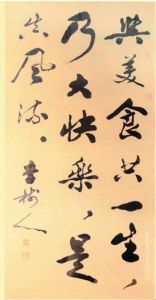 与美食共一生，
乃大快樂，是
真風流。李樹人